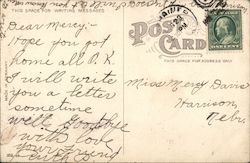 THIS SPACE FOR WRITING MESSAGES
Dear Mercy:-
Hope you got
home all O.K.
I will write
you a letter
sometime
well Goodbye
with love
your friend
POST CARD
THIS SPACE FOR ADDRESS ONLY
ONE CENT
Miss Mercy Davis
Harrison,
Nebr.